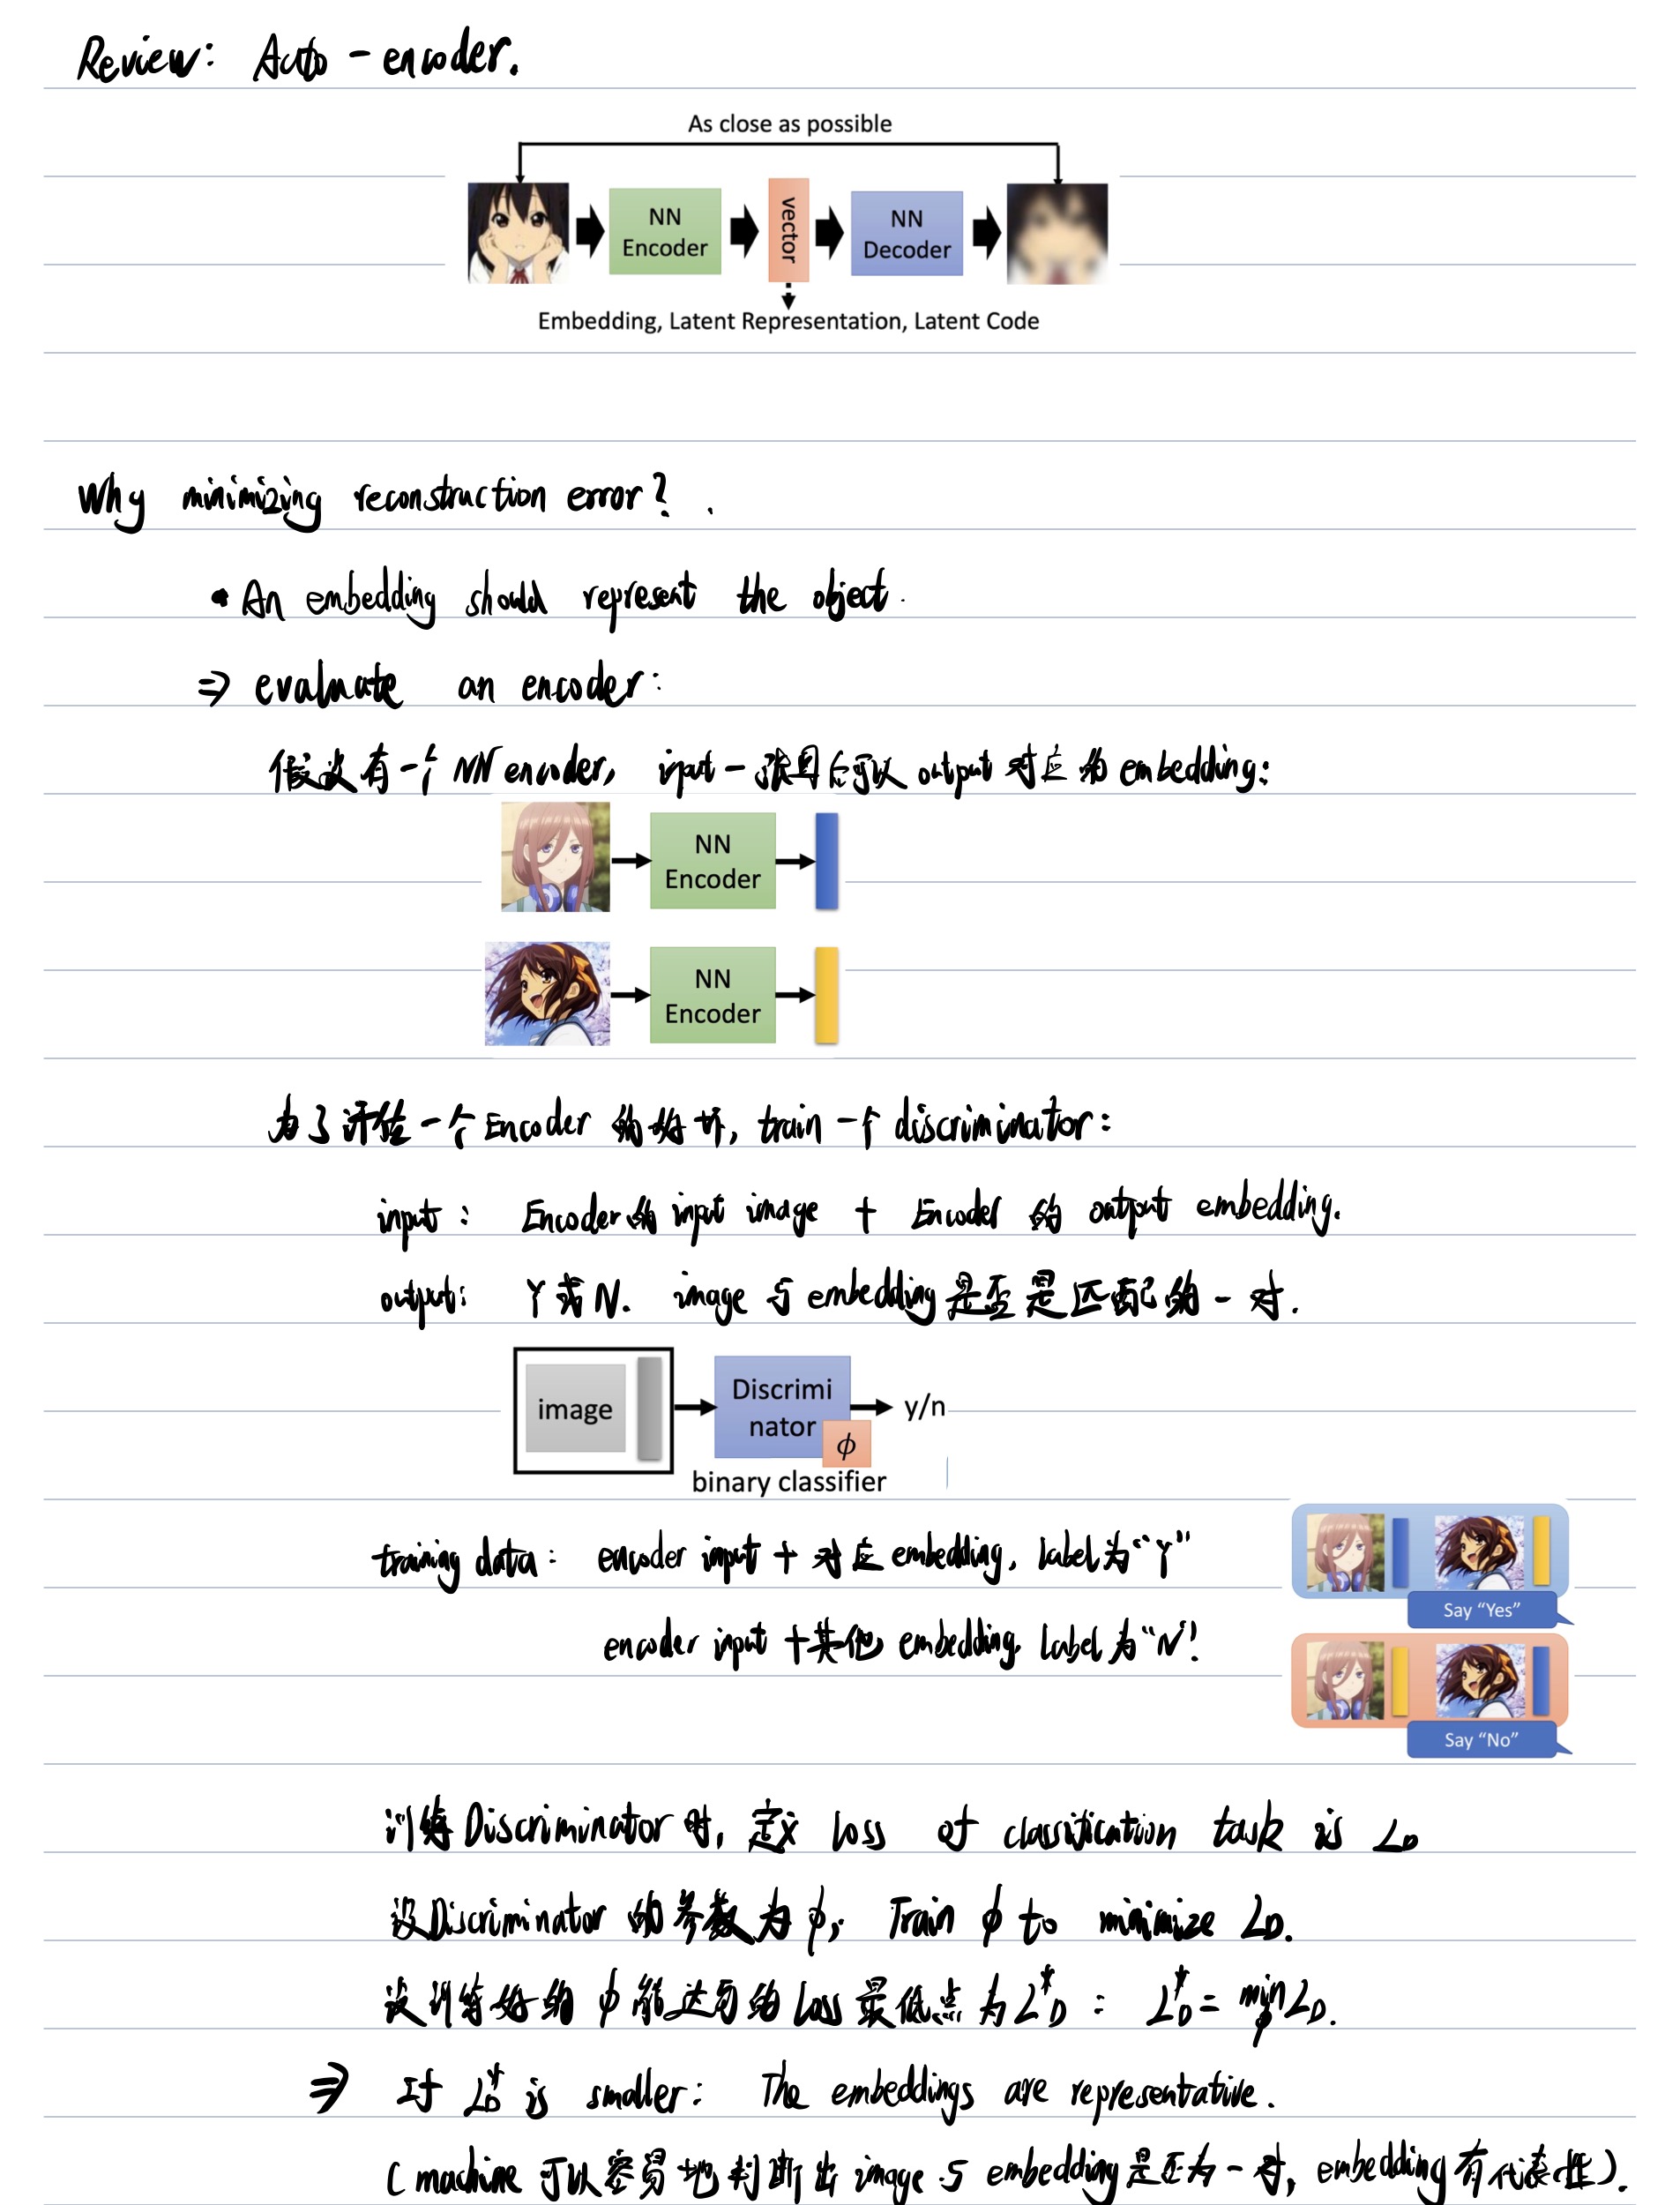 Review: Auto-encoder.
As close as possible
NN
Encoder
vector
NN
Decoder
Embedding, Latent Representation, Latent Code
Why minimizing reconstruction error?.
• An embedding should represent the object.
⇒ evaluate an encoder:
假设有一个 NN encoder, input一张图片可以 output 对应的 embedding:
NN
Encoder
NN
Encoder
为了评估一个 Encoder 的好坏, train 一个 discriminator:
input: Encoder的 input image + Encoder 的 output embedding.
output: Y 或 N. image 与 embedding 是否是匹配的一对.
image
Discrimi
nator
ϕ
y/n
binary classifier
training data: encoder input + 对应 embedding, label为“Y”
Say “Yes”
encoder input + 其他 embedding, label 为“N”.
Say “No”
训练Discriminator 时, 定义 loss of classification task is L_D
设Discriminator 的参数为 ϕ, Train ϕ to minimize L_D.
设训练好的 ϕ 能达到的 loss 最低点为 L*_D : L*_D = min_ϕ L_D.
⇒ If L*_D is smaller: The embeddings are representative.
(machine 可以容易地判断出 image 与 embedding 是否为一对, embedding 有代表性).